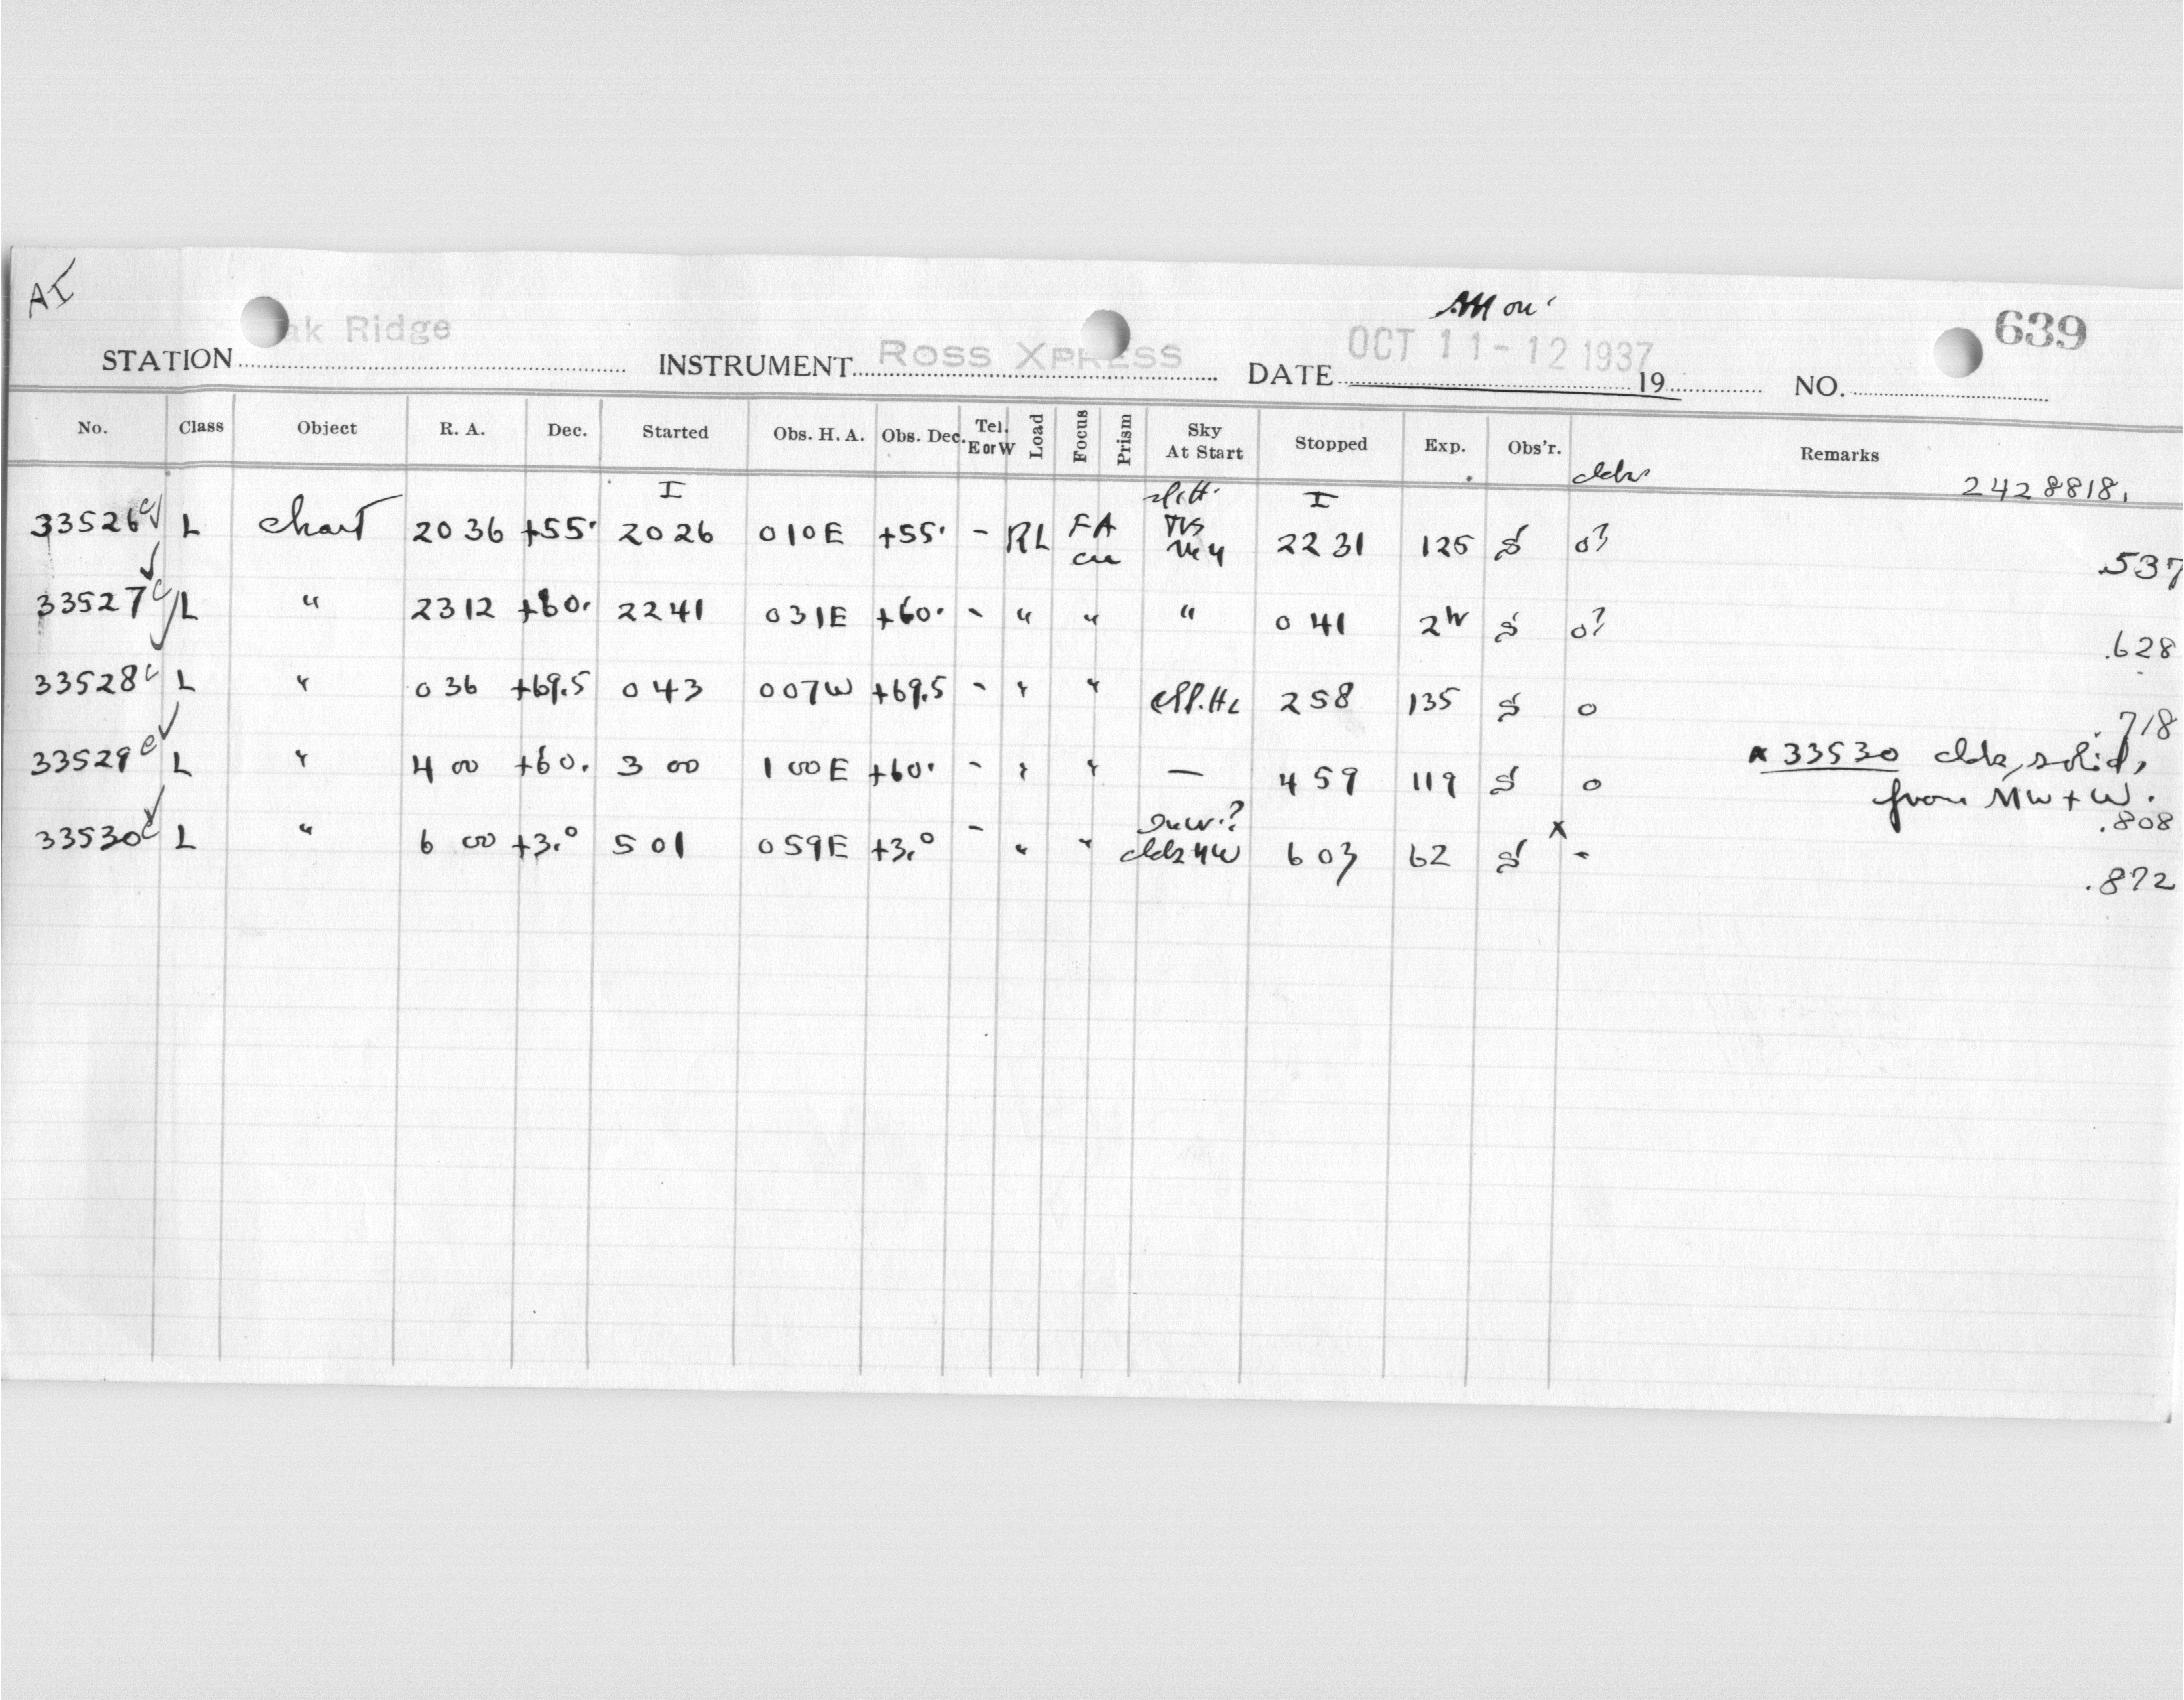 AI
AM on
STATION ak Ridge INSTRUMENT ROSS XPRESS DATE OCT 11-12 1937 19 NO. 639
No. Class Object R. A. Dec. Started Obs. H. A. Obs. Dec. Tel. E or W Load Focus Prism Sky At Start Stopped Exp. Obs'r. Remarks
clds 2428818.
I I
33526 L chart 20 36 +55. 20 26 0 10 E +55. - RL FA 22 31 125 S 0? .537
33527 L " 23 12 +60. 22 41 0 31 E +60. - " " " 0 41 2h S 0? .628
33528 L " 0 36 +69.5 0 43 0 07 W +69.5 - " " 2 58 135 S 0 .718
33529 L " 4 00 +60. 3 00 1 00 E +60. - " " — 4 59 119 S 0 .808
x 33530 clds, solid, from MW + W.
33530 L " 6 00 +3.° 5 01 0 59 E +3.° - " " clds NW 6 03 62 S x - .872